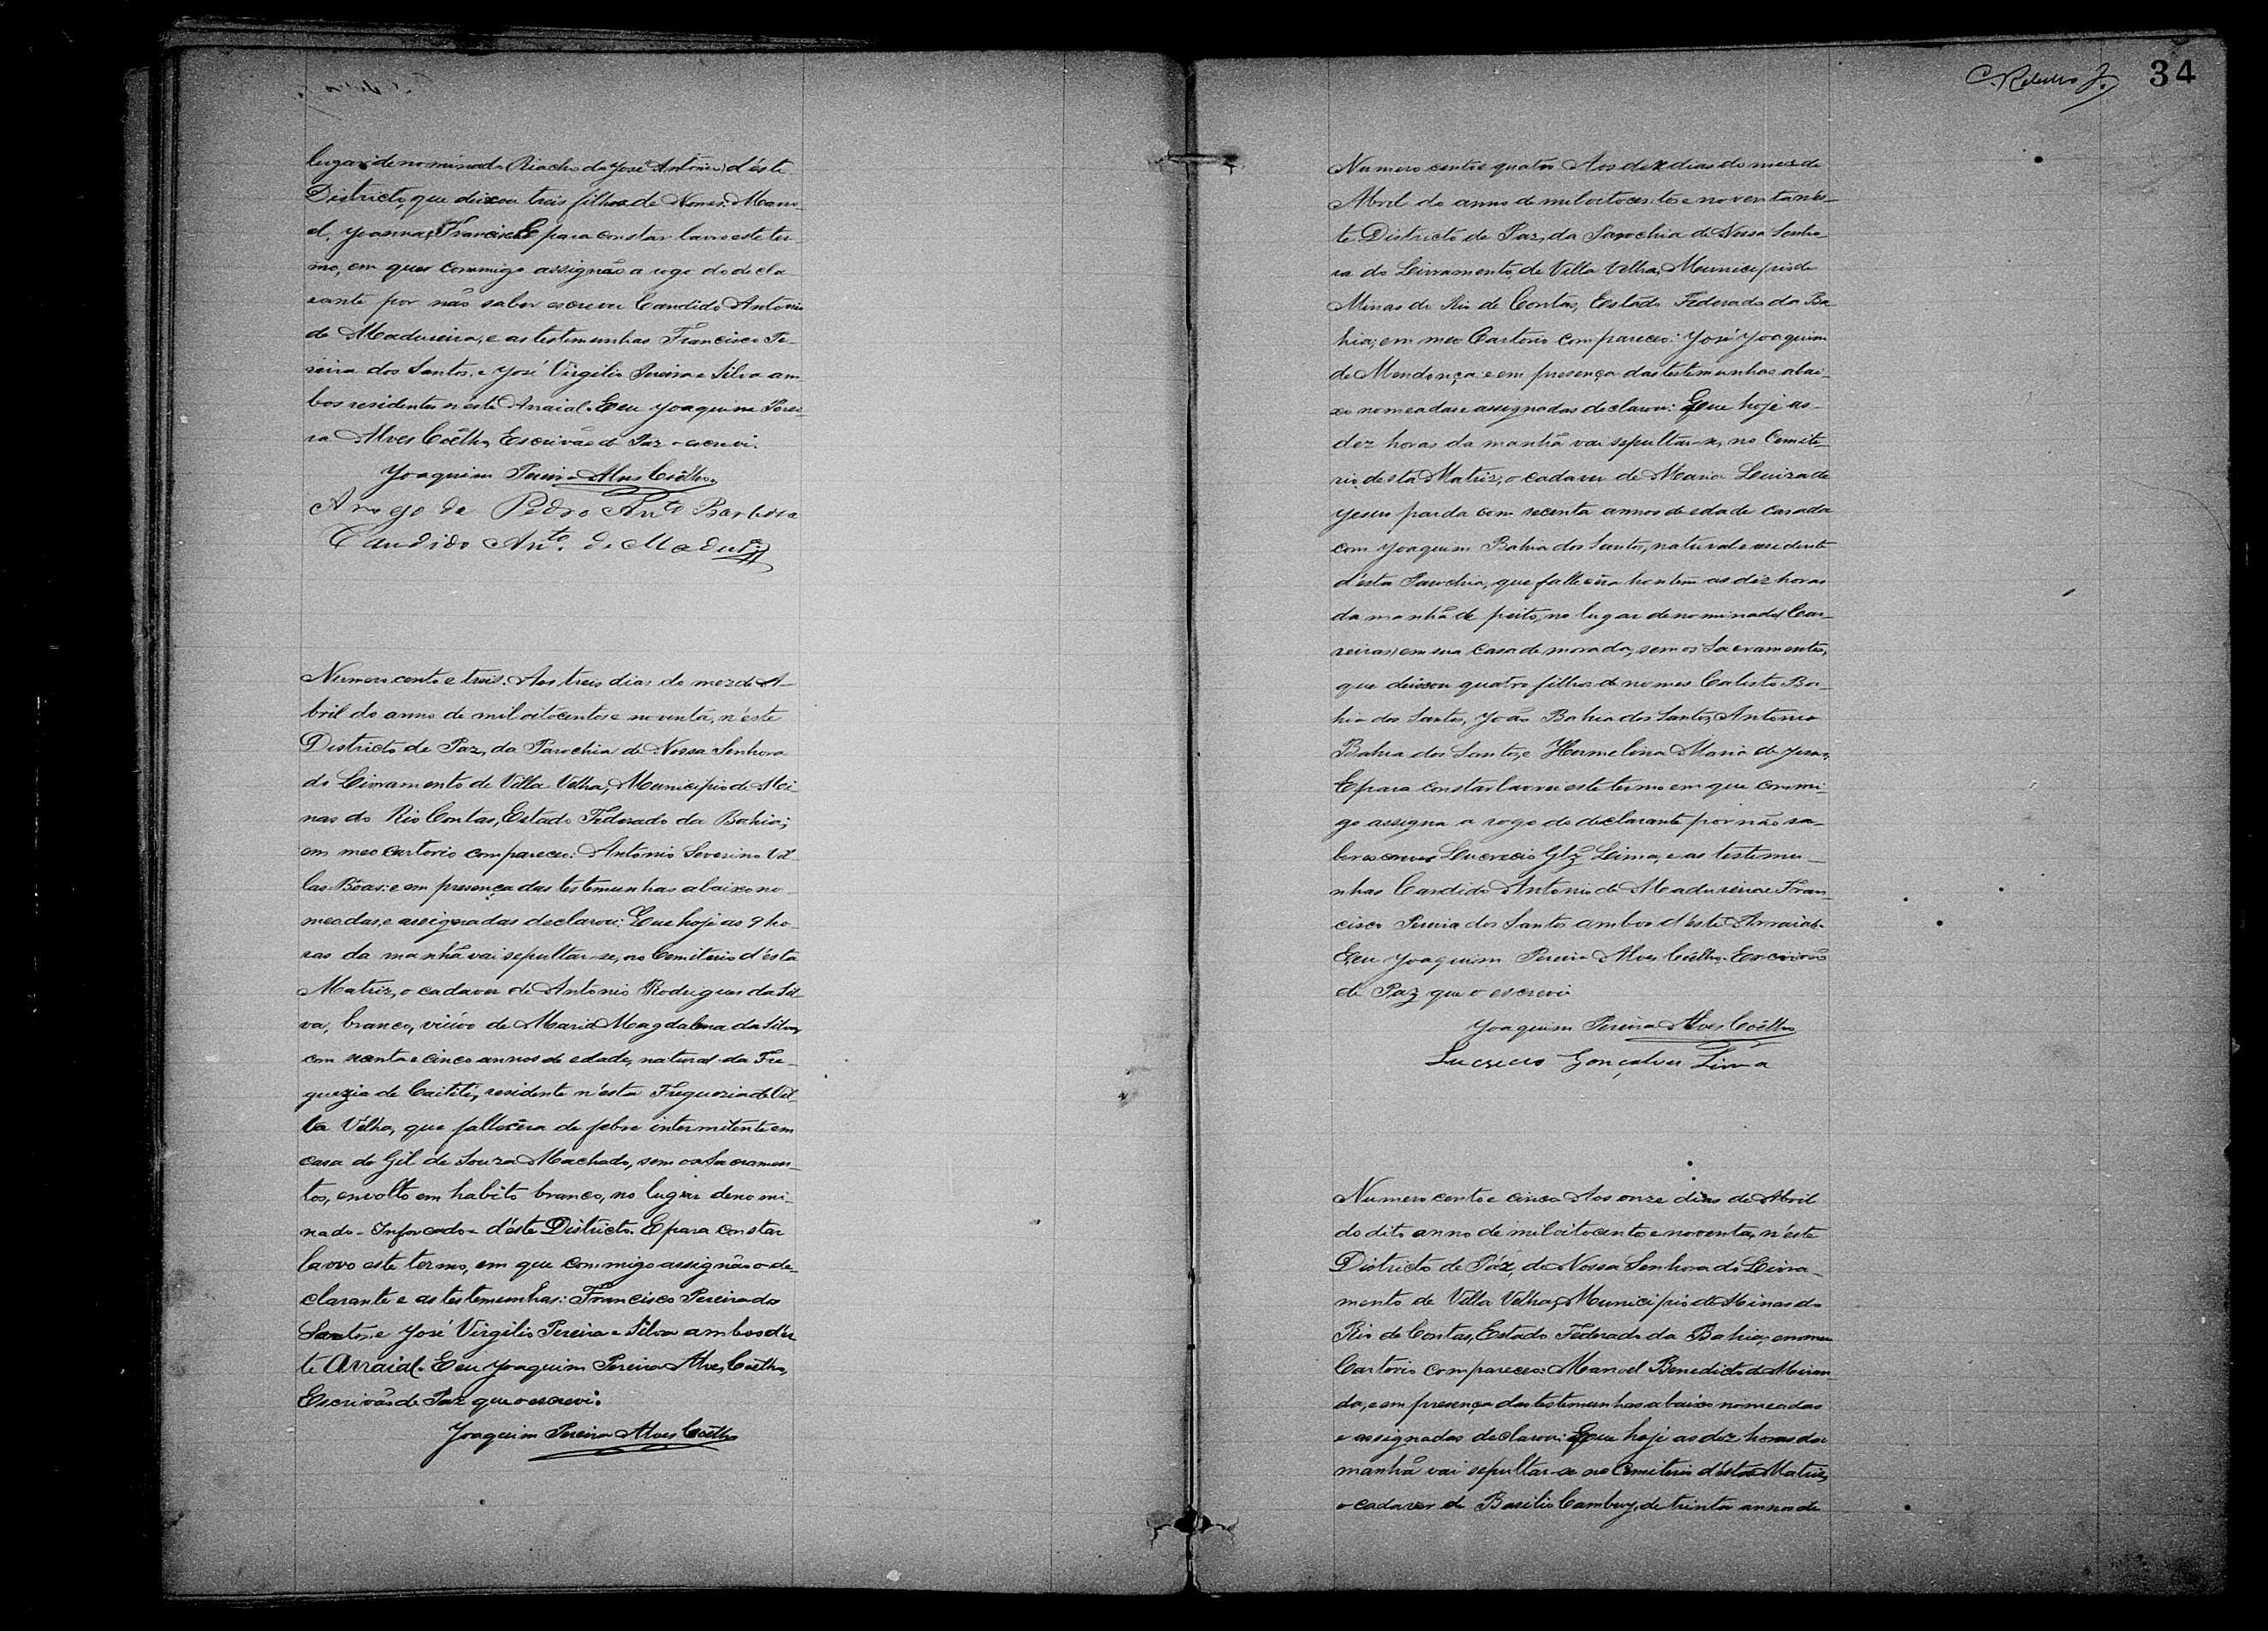 lugar denominado Riacho do José Antonio d'éste
Districto, que deixou treis filhos de Nomes: Mano-
el, Joanna, Francisca E para constar lavro este ter-
mo, em que commigo assignão a rogo do decla
rante por não saber escrever Candido Antonio
de Madureira, e as testemunhas Francisco Pe-
reira dos Santos, e José Virgilio Pereira e Silva am
bos residentes n'éste Arraial. E eu Joaquim Perei-
ra Alves Coêlho, Escrivão de Paz o escrevi.
Joaquim Pereira Alves Coêlho
A rogo de Pedro Ant.o Barboza
Candido An.to de Madur.a
Numero cento e treis. Aos treis dias do mez de A-
bril do anno de mil oitocentos e noventa, n'éste
Districto de Paz, da Parochia de Nossa Senhora
do Livramento de Villa Velha, Municipio de Mi-
nas do Rio Contas, Estado Federado da Bahia;
em meo cartorio compareceo: Antonio Severino Vil-
las Bôas: e em presença das testemunhas abaixo no
meadas, e assignadas declarou: Que hoje as 9 ho-
ras da manhã vai sepultar-se, no Cemiterio d'ésta
Matriz, o cadaver de Antonio Rodrigues da Sil-
va, branco, viúvo de Maria Magdalena da Silva,
com secenta e cinco annos de edade, natural da Fre-
guezia de Caitité, residente n'ésta Freguezia de Vil-
la Velha, que fallecêra de febre intermitente em
casa de Gil de Souza Machado, sem os Sacramen-
tos, envolto em habito branco, no lugar denomi-
nado - Inforcado - d'éste Districto. E para constar
lavro este termo, em que commigo assignão o de-
clarante e as testemunhas: Francisco Pereira dos
Santos, e José Virgilio Pereira e Silva ambos d'es
te Arraial. E eu Joaquim Pereira Alves Coêlho,
Escrivão de Paz que o escrevi.
Joaquim Pereira Alves Coêlho
34
Numero cento e quatro Aos dez dias do mez de
Abril do anno de mil oitocentos e noventa n'és-
te Districto de Paz, da Parochia de Nossa Senho-
ra do Livramento, de Villa Velha, Municipio de
Minas do Rio de Contas, Estado Federado da Ba-
hia; em meo Cartorio compareceo: José Joaquim
de Mendonça: e em presença das testemunhas abai-
xo nomeadas e assignadas declarou: Que hoje as-
dez horas da manhã vai sepultar-se, no Cemite-
rio desta Matriz, o cadaver de Maria Luiza de
Jesus parda com secenta annos de edade casada
com Joaquim Bahia dos Santos, natural e residente
d'ésta Parochia, que fallecêra hontem as dez horas
da manhã de peito, no lugar denominado (Car-
reiras) em sua casa de morada, sem os Sacramentos,
que deixou quatro filhos de nomes Calisto Ba-
hia dos Santos, João Bahia dos Santos, Antonio
Bahia dos Santos, e Hermelina Maria de Jesus.
E para constar lavrei este termo em que commi-
go assigna a rogo do declarante por não sa-
ber escrever Lucrecio Glz Lima, e as testemu-
nhas Candido Antonio de Madureira e Fran-
cisco Pereira dos Santos ambos d'éste Arraial.
E eu Joaquim Pereira Alves Coêlho Escrivão
de Paz que o escrevi
Joaquim Pereira Alves Coêlho
Lucrecio Gonçalves Lima
Numero cento e cinco Aos onze dias de Abril
do dito anno de mil oitocento e noventa, n'éste
Districto de Páz, de Nossa Senhora do Livra-
mento de Villa Velha, Municipio de Minas do
Rio de Contas, Estado Federado da Bahia, em meu
Cartorio compareceo: Manoel Benedicto de Miran-
da, e em presença das testemunhas abaixo nomeadas
e assignadas declarou: Que hoje as dez horas da
manhã vai sepultar-se no Cemiterio d'ésta Matriz,
o cadaver de Basilio Cambuy, de trinta annos de